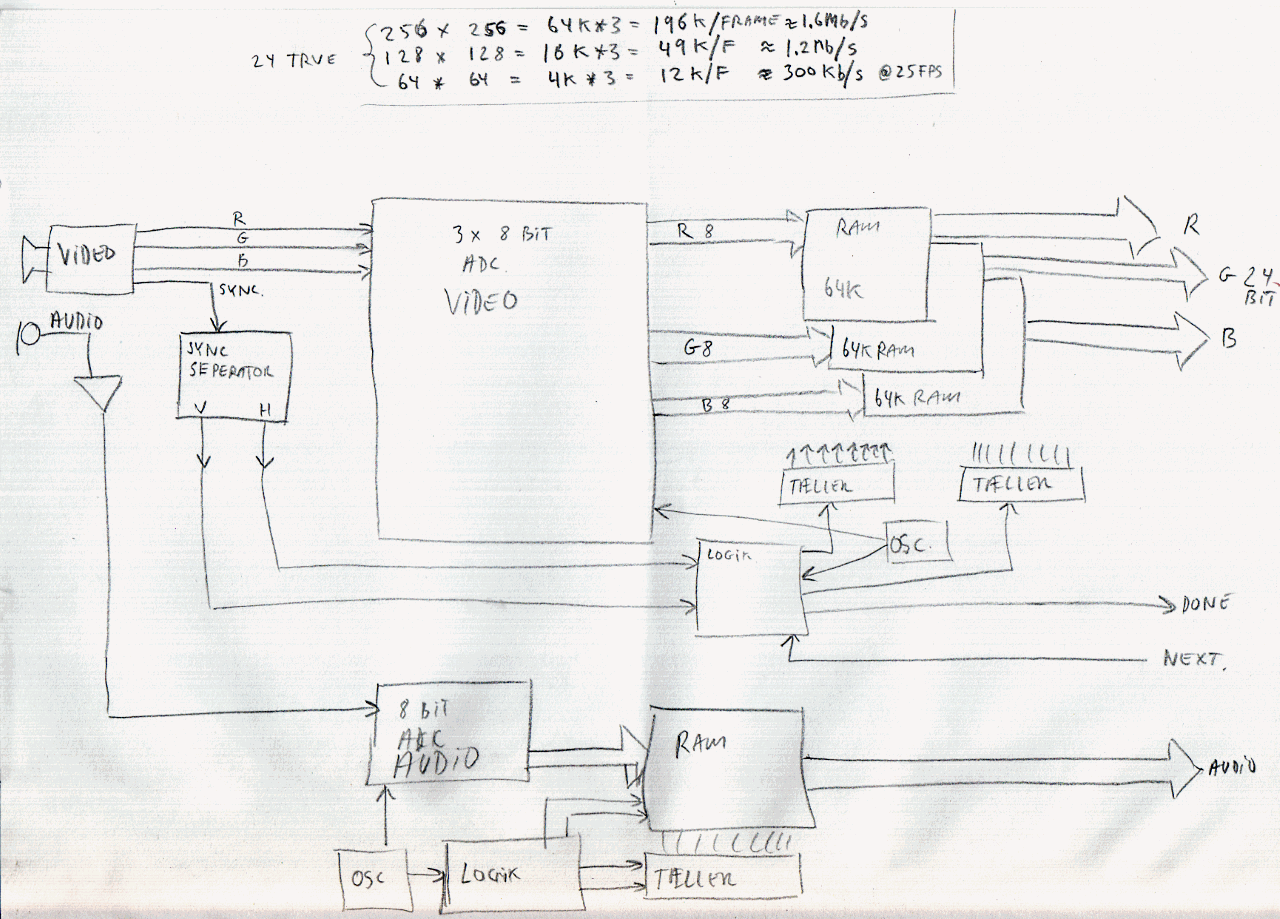 256 × 256 = 64K*3 = 196K/FRAME ≈ 1.6Mb/s
24 TRUE
128 × 128 = 16K*3 = 49K/F ≈ 1.2Mb/s
64 * 64 = 4K*3 = 12K/F ≈ 300Kb/s @25FPS
VIDEO
R
G
B
SYNC.
AUDIO
SYNC
SEPERATOR
V H
3 x 8 BIT
ADC.
VIDEO
R 8
G8
B 8
RAM
64K
64K RAM
64K RAM
R
G 24
BIT
B
TÆLLER
TÆLLER
OSC.
LOGIK
DONE
NEXT.
8 BIT
ADC
AUDIO
RAM
AUDIO
OSC
LOGIK
TÆLLER